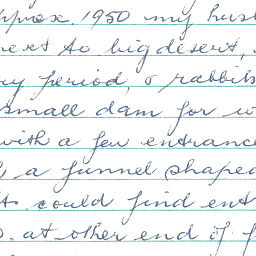 pprox. 1950 my husb
next to big desert,
ry period, & rabbits
small dam for w
with a few entrance
a funnel shaped
ts could find entr
s. at other end of f